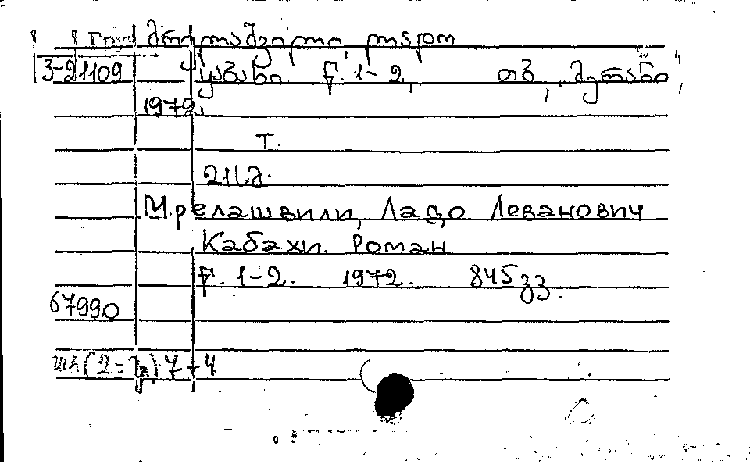 მრელაშვილი, ლადო
3-21109 ყაბახი წ. 1-2, თბ., „მერანი“,
1972.
T.
211д.
Мрелашвили, Ладо Леванович
Кабахи. Роман
წ. 1-2. 1972. 845 გვ.
67990
7+4